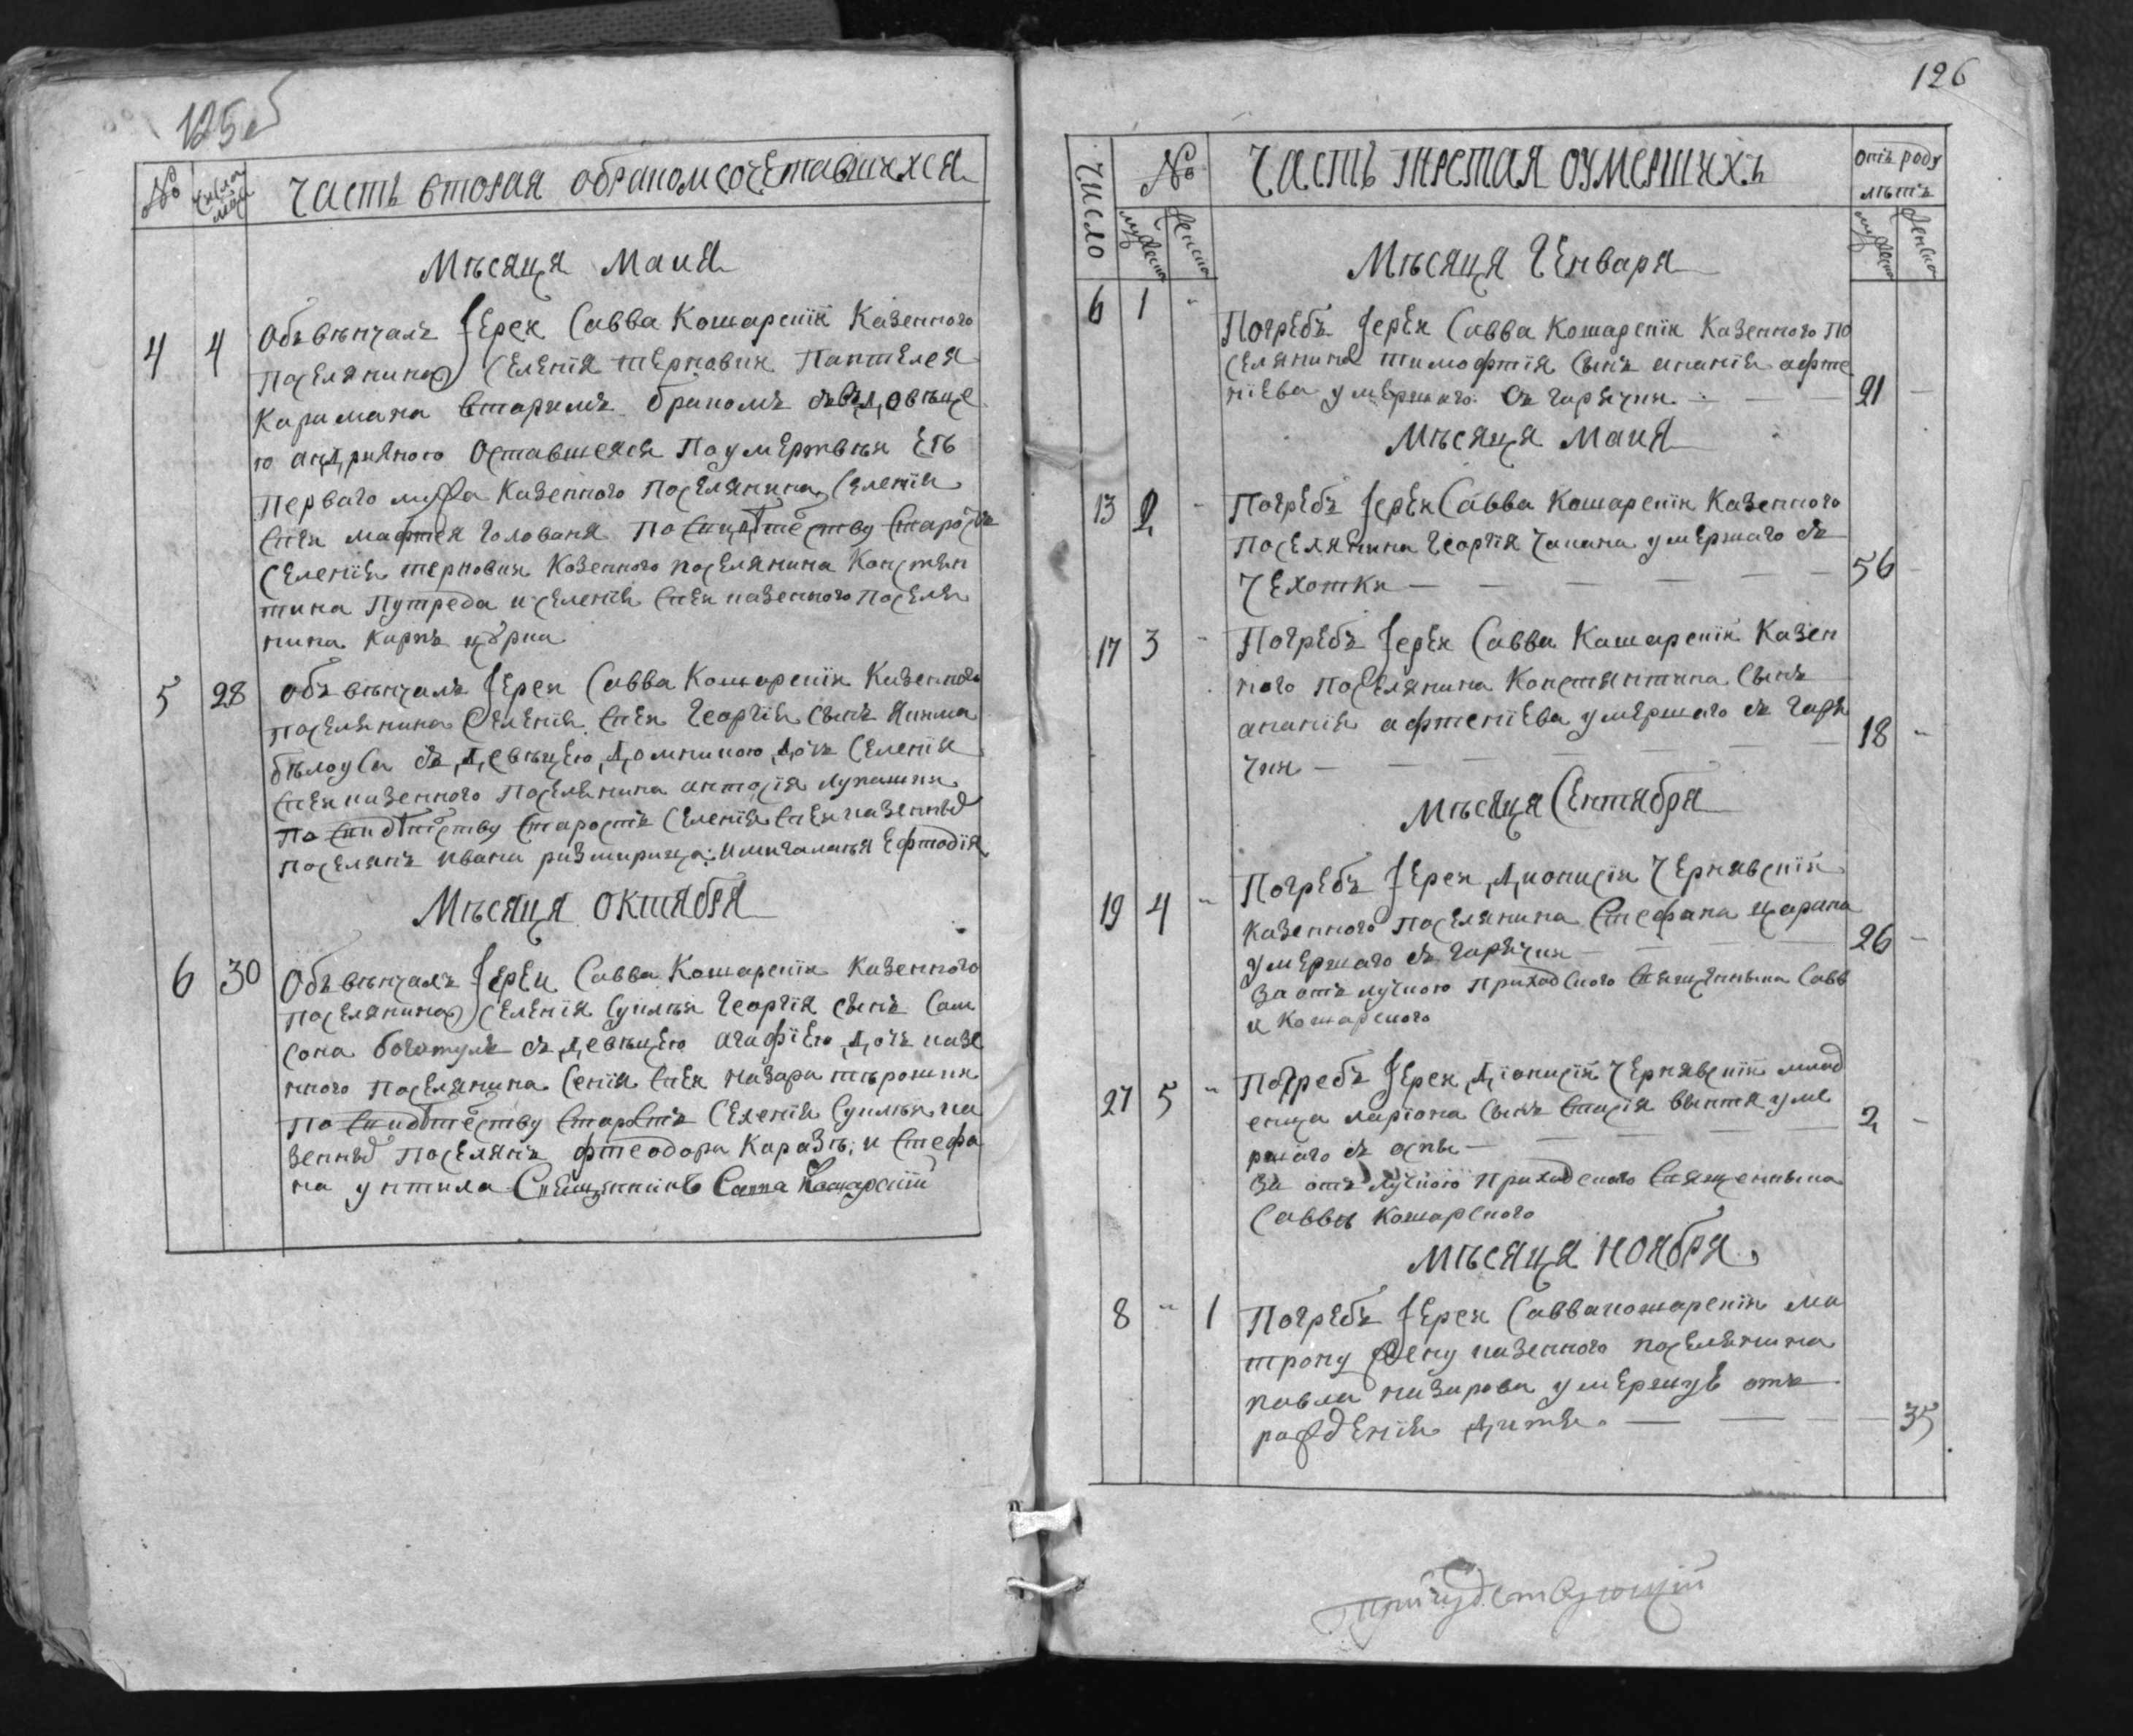 125 об
№ числа часть вторая обракомсочетавшихся
Мѣсяца Маия
4 4 Объвѣнчалъ Іерей Савва Кошарскїй Казенного
поселянина Селенїя терновки Пантелея
Каримана вторимъ бракомъ съ вдовице
ю Андрияного Оставшеяся Поумертвїи Егѡ
Перваго мужа Казенного Поселянина Селенїя
Спеи мафтея Голованя По свидѣтеству Старостъ
Селенїя терновки Козенного поселянина Констан
тина Путреда и Селенїя Спеи казенного Поселя
нина Карпъ
5 28 объвѣнчалъ Іерей Савва Кошарскїй Казенного
поселянина Селенїя Спеи Георгїя сынъ Якима
бѣлоуса съ дѣвицею Домникою дочъ Селенїя
Спеи казенного Поселянина антофїя лупашки
По свидѣтеству Старостъ Селенїя Спеи казенныхъ
поселянъ ивана и михалакїя Ефтодїя
Мѣсяца октября
6 30 Объвѣнчалъ Іерей Савва Кошарскїй Казенного
поселянина Селенїя Суклѣи Георгїя сынъ Сам
сона богатулъ съ дѣвицею агафїею дочъ казе
нного поселянина Сенїя Спеи назара
По свидѣтеству Старостъ Селенїя Суклѣи ка
зенныхъ поселянъ фтеодора Каразѣ и Стефа
на Священникъ Савва Кошарскїй
126
число № часть третая оумершихъ отъ роду
лѣтъ
мужеска женска мужеска женска
Мѣсяца Генваря
6 1 " Погребъ Іерей Савва Кошарскїй Казенного по
селянина тимофтїя сынъ ананїя афте
нїева умершаго съ гарячки — — 21 —
Мѣсяца Маия
13 2 " Погребъ Іерей Савва Кошарскїй Казенного
поселянина Георгїя Чапана умершаго съ
чехотки — — — — — — 56 —
17 3 " Погребъ Іерей Савва Кашарскїй Казен
ного поселянина Константина сынъ
ананїя афтенїева умершаго съ гаря
чки — — — — — — 18 "
Мѣсяца Сентября
19 4 " Погребъ Іерей Дионисїй Чернявскїй
Казенного поселянина Стефана царана
умершаго съ гарячки — — — 26 —
За отълучкою приходского священника Савв
и Кошарского
27 5 " Погребъ Іерей Дїонисїй Чернявскїй млад
енца ларїона сынъ уме
ршаго съ оспы — — — — 2 —
За отълучкою приходского священника
Саввы Кошарского
Мѣсяца ноября
8 " 1 Погребъ Іерей Савва кошарскїй ма
трону жену казенного поселянина
павла назарова умершую отъ
рожденїя дитя — — — — 35